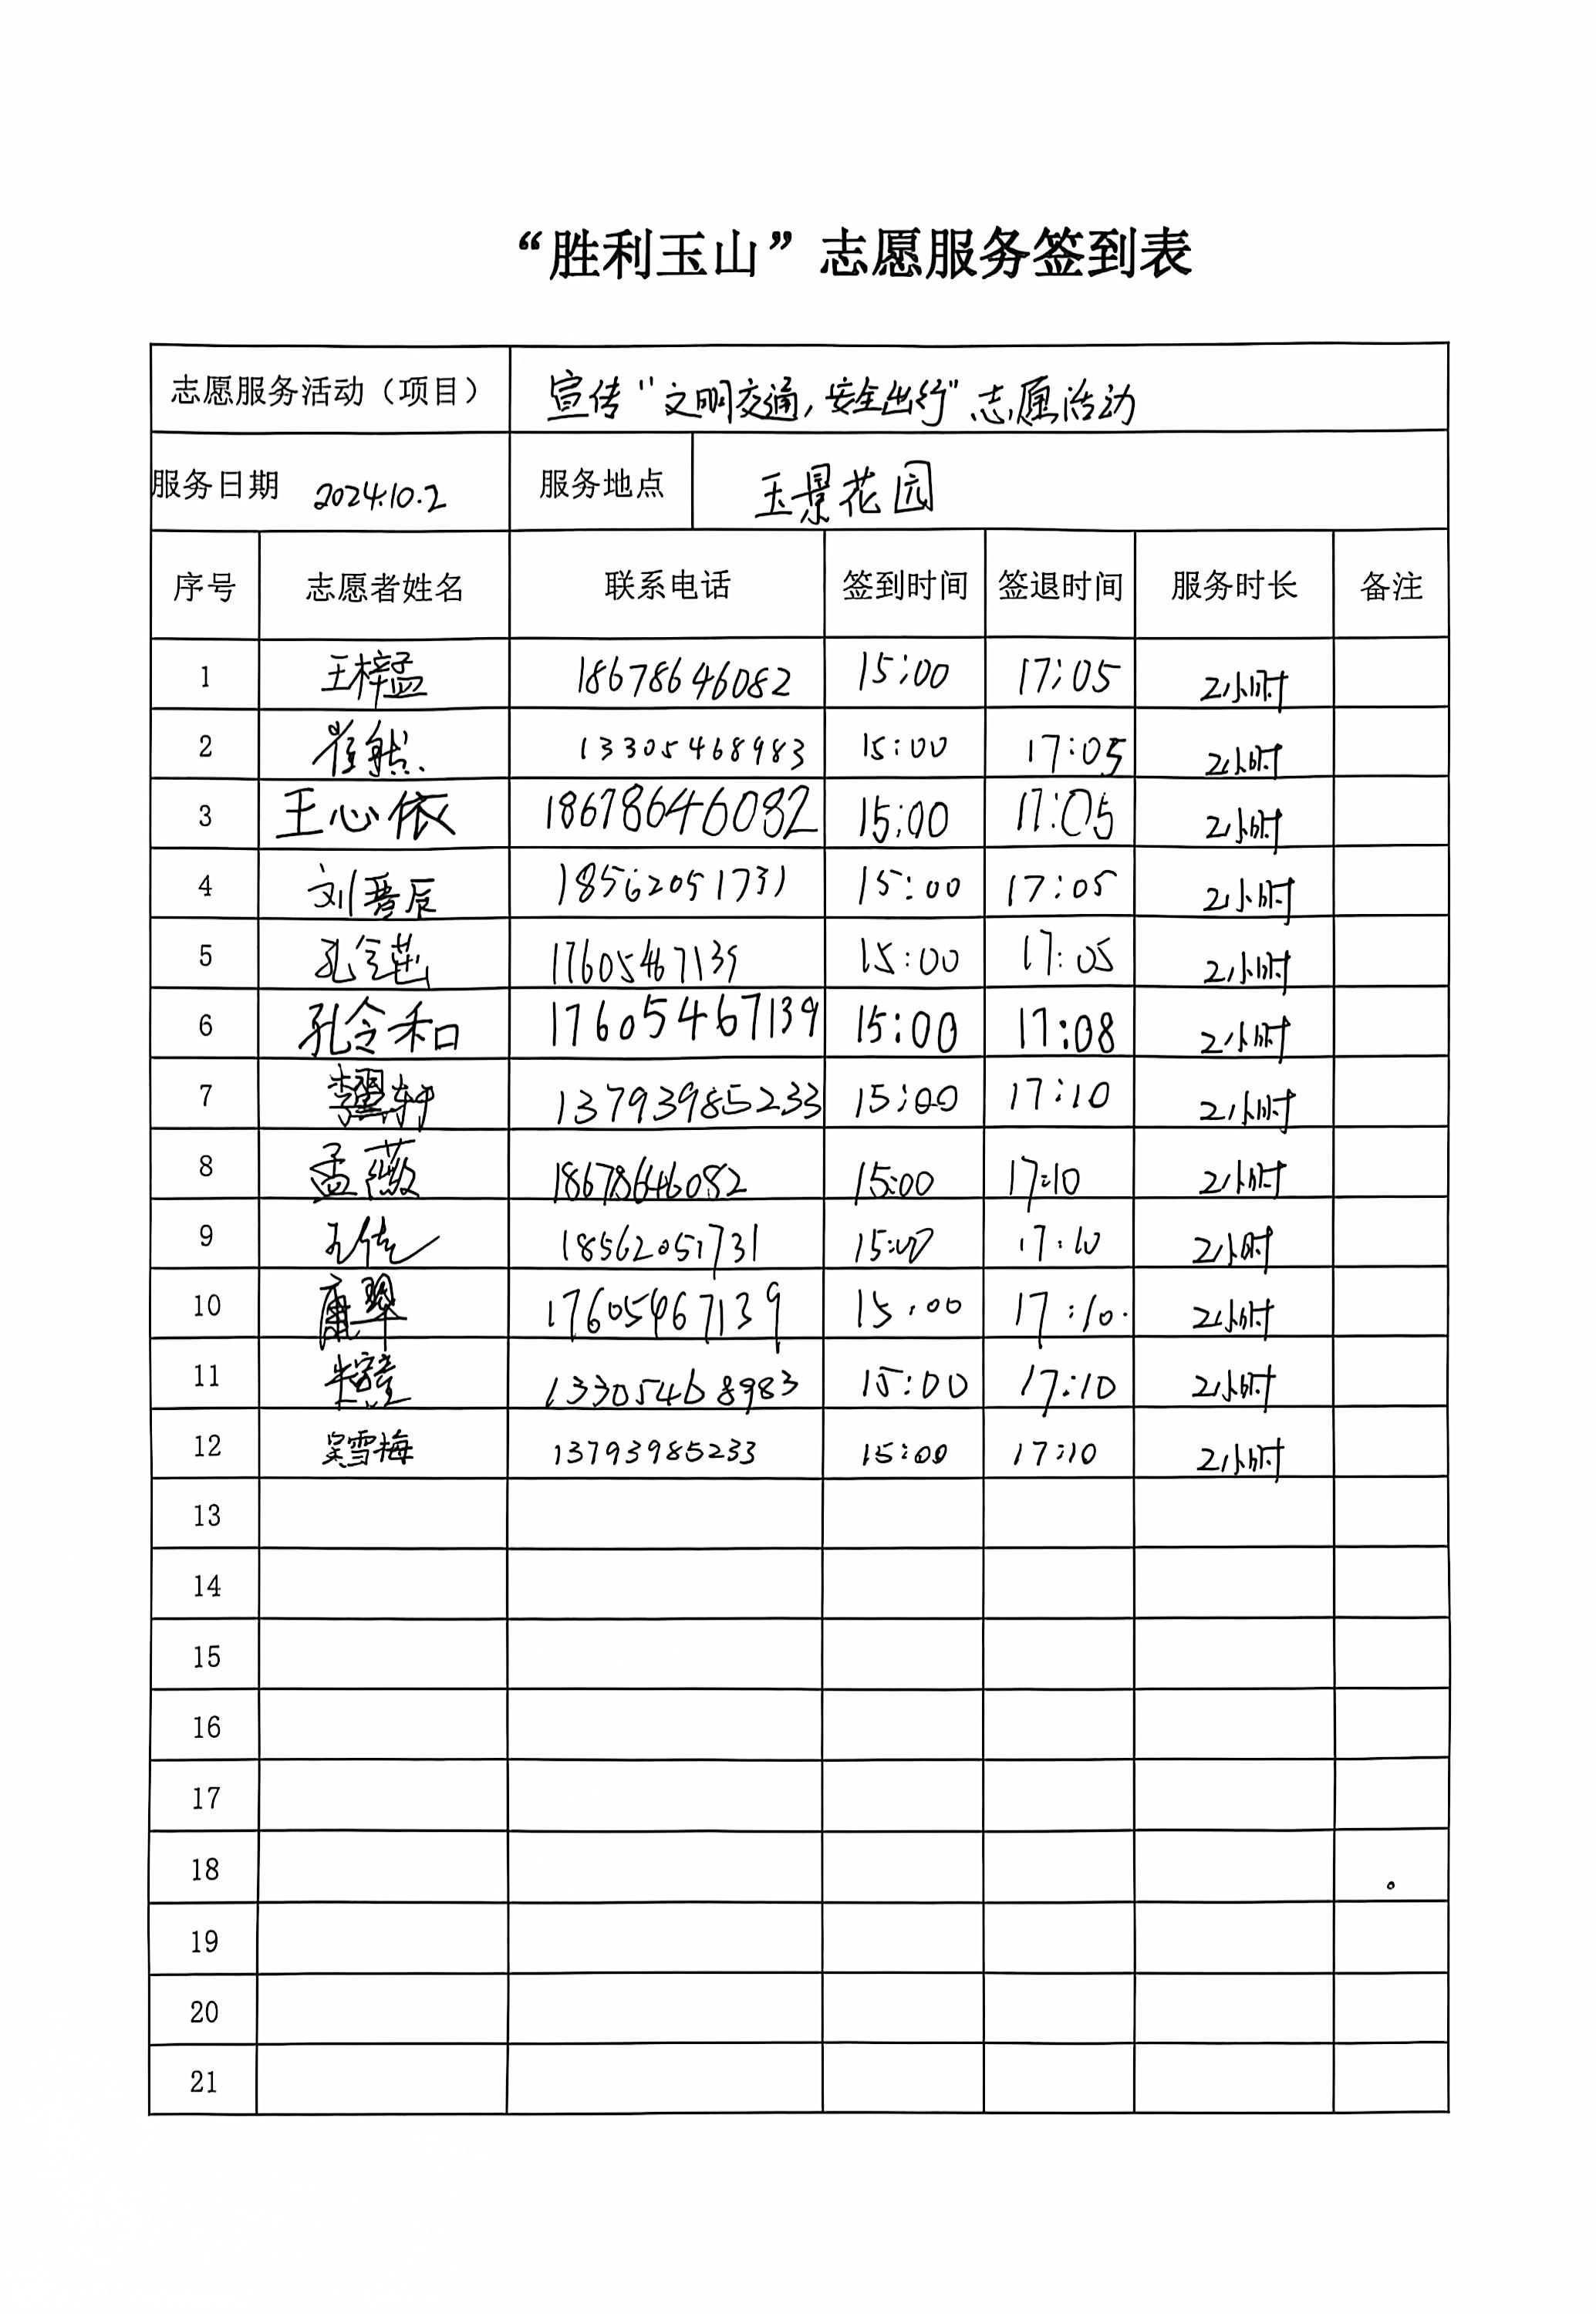 “胜利玉山”志愿服务签到表
志愿服务活动（项目） 宣传“文明交通，安全出行”志愿活动
服务日期 2024.10.2 服务地点 玉景花园
序号 志愿者姓名 联系电话 签到时间 签退时间 服务时长 备注
1 王梓孟 18678646082 15:00 17:05 2小时
2 崔然 13305468983 15:00 17:05 2小时
3 王心依 18678646082 15:00 17:05 2小时
4 刘晋辰 18562051731 15:00 17:05 2小时
5 孔令 17605467139 15:00 17:05 2小时
6 孔令和 17605467139 15:00 17:08 2小时
7 李翼轩 13793985233 15:00 17:10 2小时
8 孟薇 18678646082 15:00 17:10 2小时
9 18562051731 15:00 17:10 2小时
10 康翠 17605467139 15:00 17:10. 2小时
11 13305468983 15:00 17:10 2小时
12 吴雪梅 13793985233 15:00 17:10 2小时
13
14
15
16
17
18
19
20
21